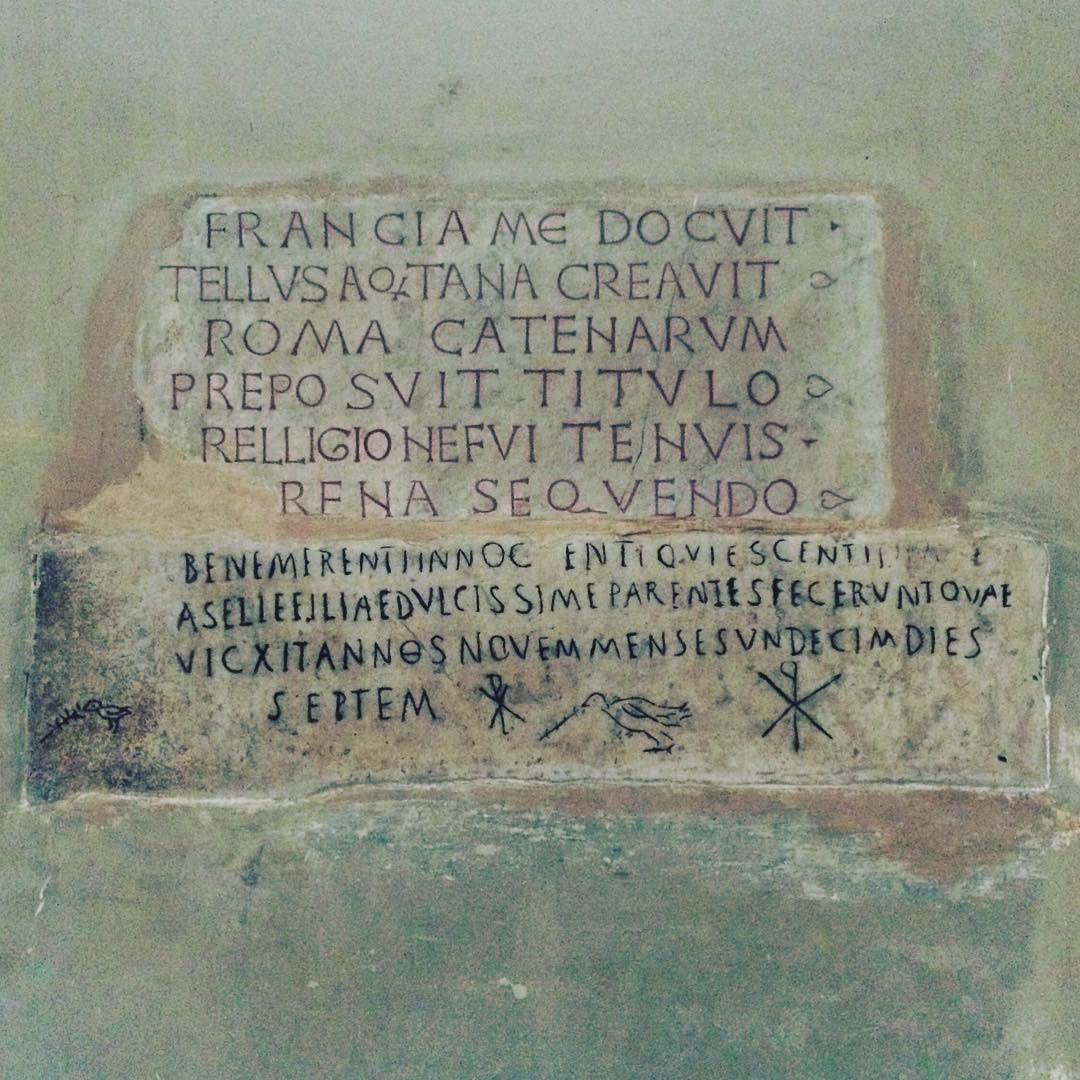 FRANCIA ME DOCVIT
TELLVS AQTANA CREAVIT
ROMA CATENARVM
PREPOSVIT TITVLO
RELLIGIONE FVI TENVIS
RENA SEQVENDO
BENEMERENTI INNOCENTI QVIESCENTI
ASELLIE FILIAE DVLCISSIME PARENTES FECERVNT QVAE
VICXIT ANNOS NOVEM MENSES VNDECIM DIES
SEPTEM